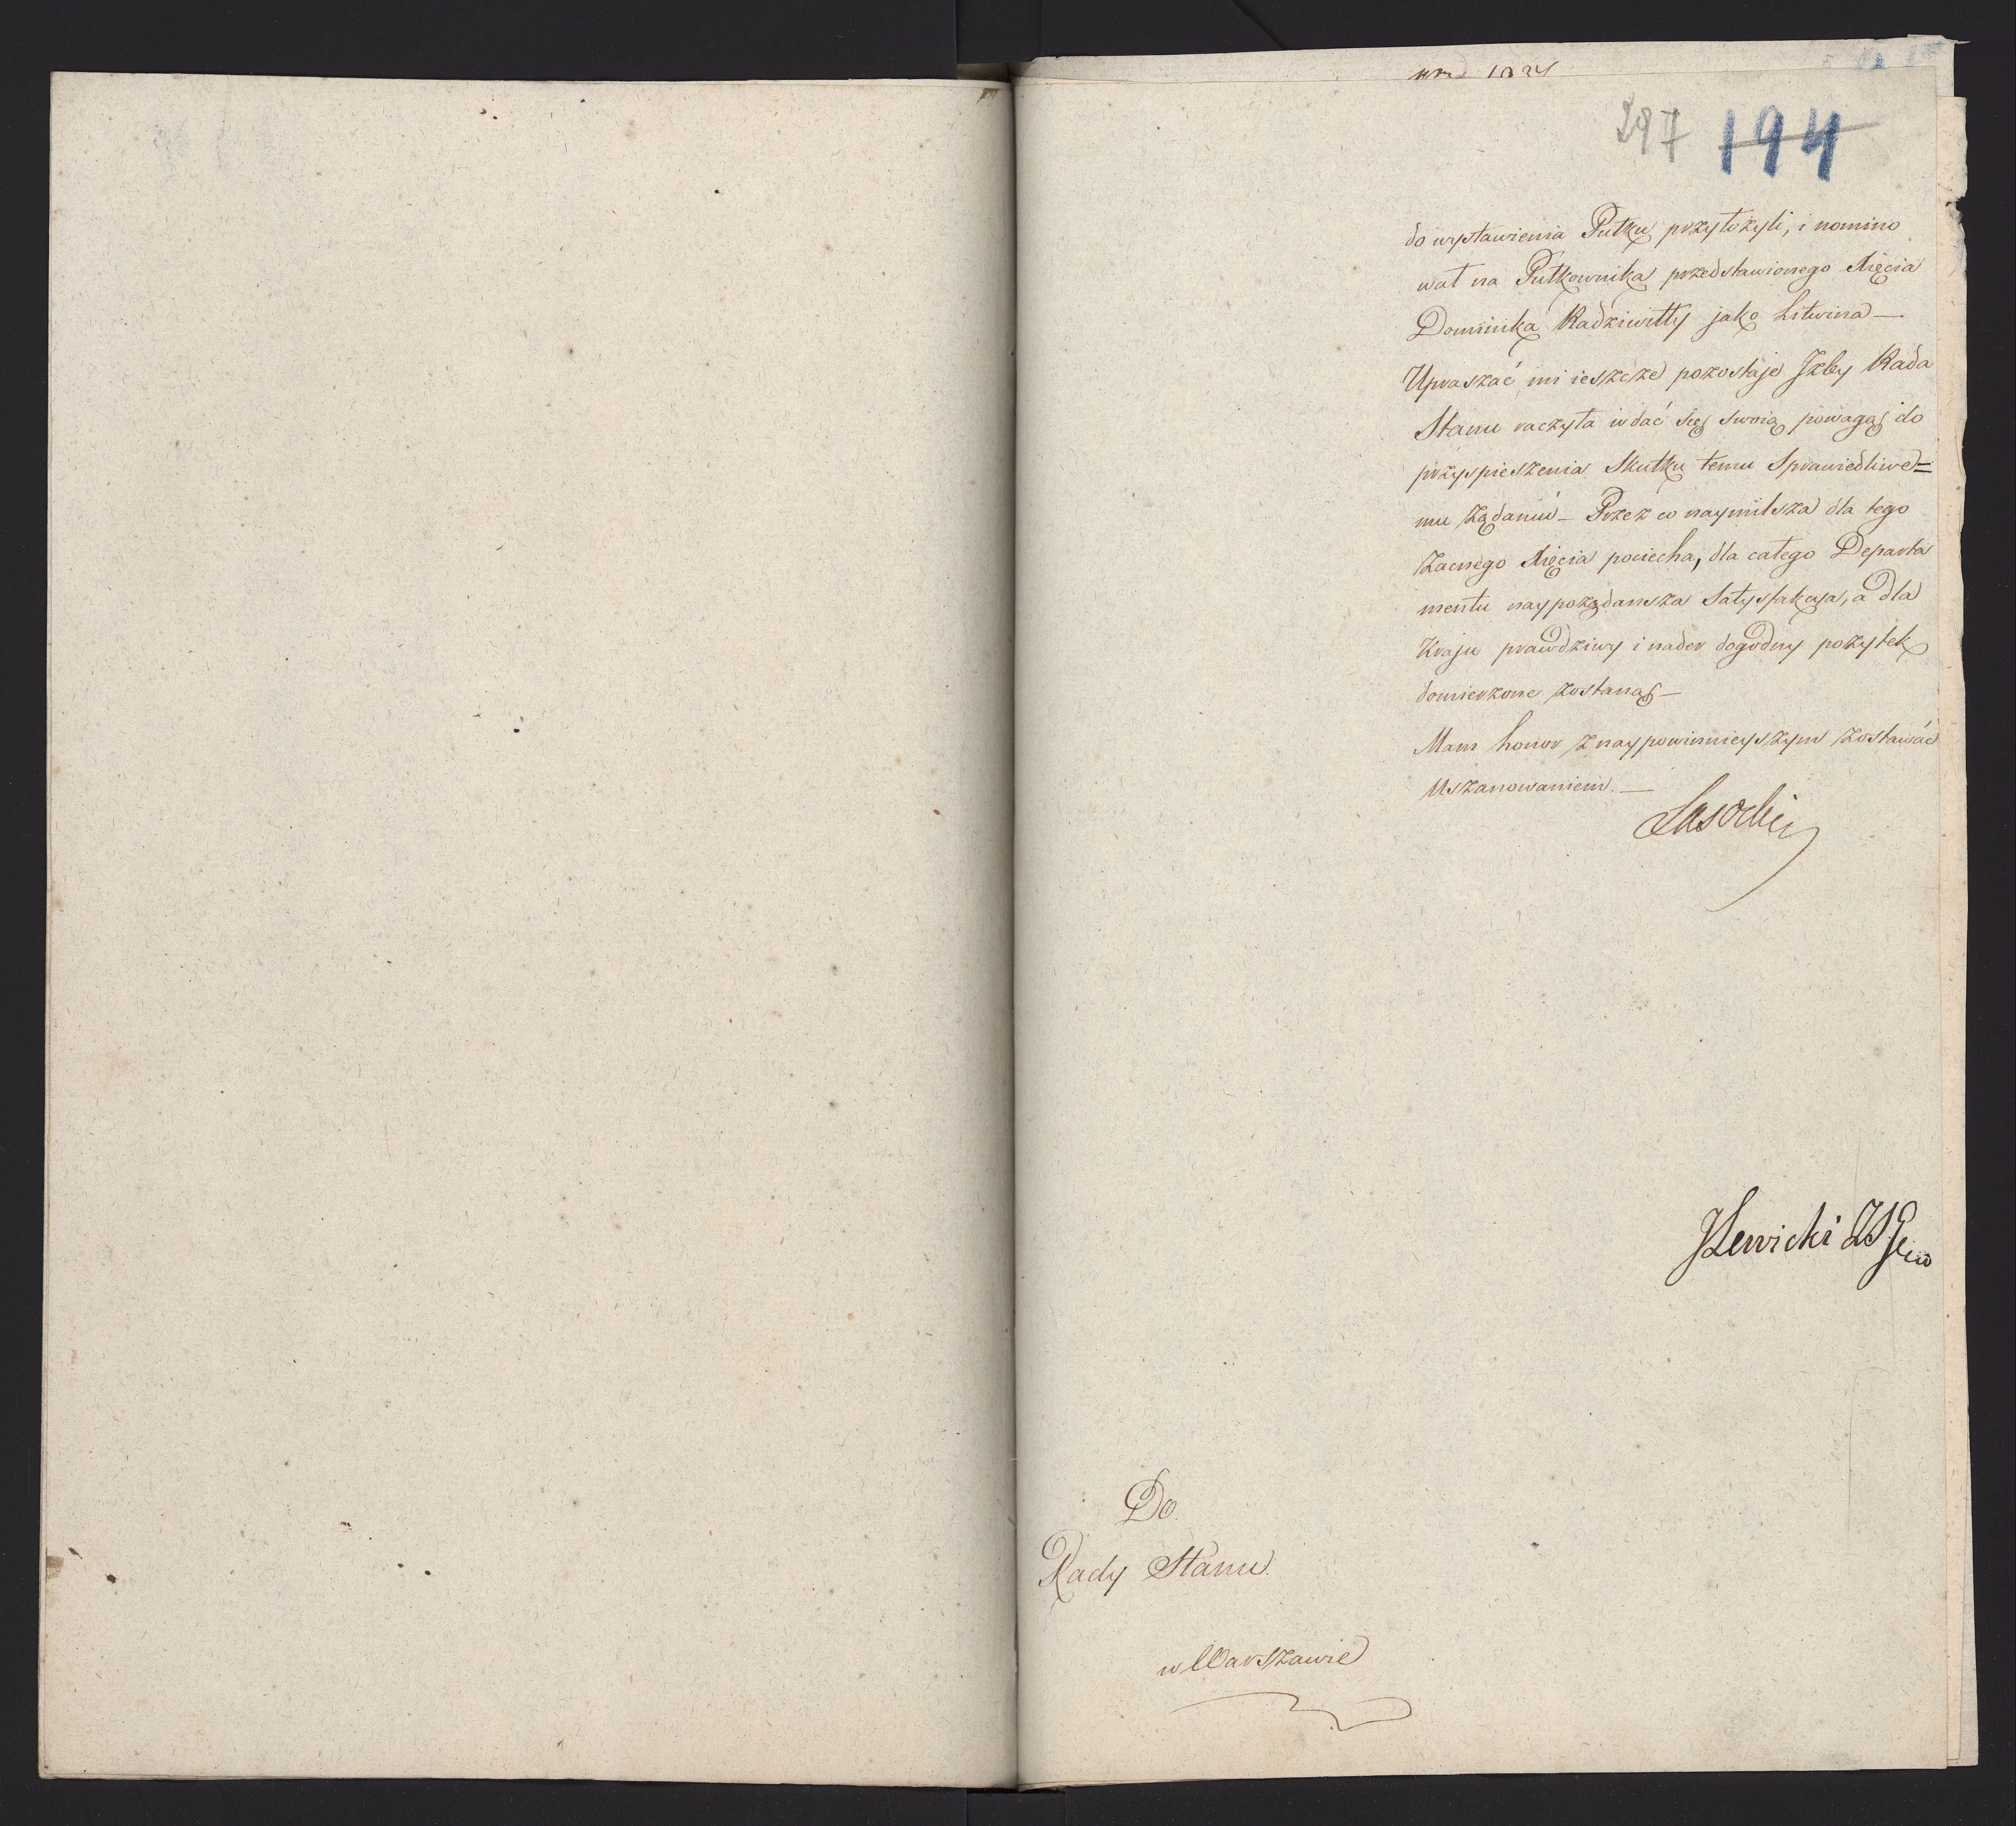 297 194
do wystawienia Pułku przyłożyli, i nomino
wał na Pułkownika przedstawionego Xięcia
Dominika Radziwiłły jako Litwina —
Upraszać mi ieszcze pozostaje Jżby Rada
Stanu raczyła wdać się swoią powagą do
przyspieszenia Skutku temu Sprawiedliwe=
mu żądaniu — Przez co naymilsza dla tego
Zacnego Xięcia pociecha, dla całego Departa
mentu naypożądansza Satysfakcya, a dla
Kraju prawdziwy i nader dogodny pożytek
domierzone zostaną —
Mam honor z naypowinnieyszym zostawać
Uszanowaniem. —
Lasocki
JLewicki
Do
Rady Stanu.
w Warszawie